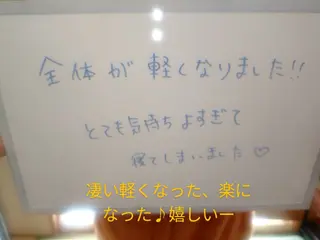 全体が軽くなりました!!
とても気持ちよすぎて
寝てしまいました♡
凄い軽くなった、楽に
なった♪嬉しいー